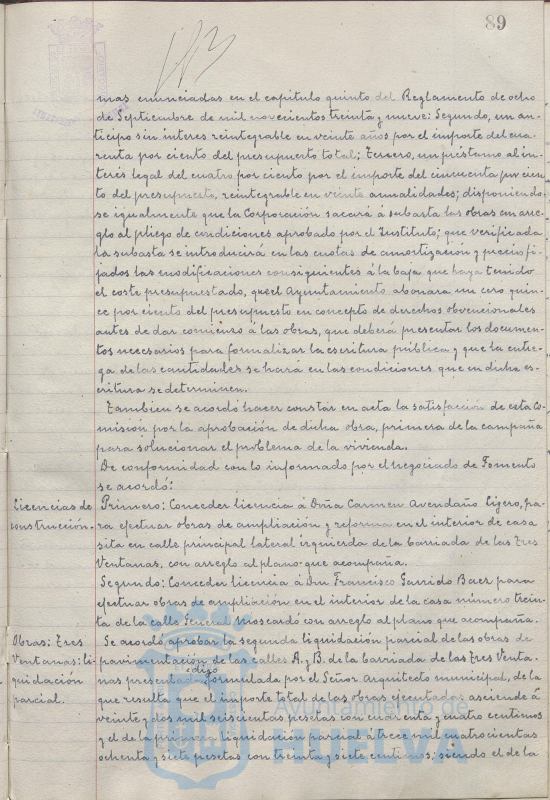 89
mas enunciadas en el capitulo quinto del Reglamento de ocho
de Septiembre de mil novecientos treinta y nueve: Segundo, un an-
ticipo sin interes reintegrable en veinte años por el importe del cua-
renta por ciento del presupuesto total; Tercero, un préstamo al in-
terés legal del cuatro por ciento por el importe del cincuenta por cien-
to del presupuesto, reintegrable en veinte anualidades; disponiendo-
se igualmente que la Corporación sacará á subasta las obras en arre-
glo al pliego de condiciones aprobado por el Instituto; que verificada
la subasta se introducirá en las cuotas de amortización y precios fi-
jados las modificaciones consiguientes á la baja que haya tenido
el coste presupuestado, que el Ayuntamiento abonara un cero quin-
ce por ciento del presupuesto en concepto de derechos obvencionales
antes de dar comienzo á las obras, que deberá presentar los documen-
tos necesarios para formalizar la escritura pública y que la entre-
ga de las cantidades se hará en las condiciones que en dicha es-
critura se determinen.
Tambien se acordó hacer constar en acta la satisfacción de esta Co-
misión por la aprobación de dicha obra, primera de la campaña
para solucionar el problema de la vivienda.
De conformidad con lo informado por el negociado de Fomento
se acordó:
Licencias de
construcción.
Primero: Conceder licencia á Doña Carmen Avendaño Ligero, pa-
ra efectuar obras de ampliación y reforma en el interior de casa
sita en calle principal lateral izquierda de la barriada de las Tres
Ventanas, con arreglo al plano que acompaña.
Segundo: Conceder licencia á Don Francisco Garrido Baez para
efectuar obras de ampliación en el interior de la casa número trein-
ta de la calle General Moscardó con arreglo al plano que acompaña.
Obras: Tres
Ventanas: li-
quidación
parcial.
Se acordó aprobar la segunda liquidación parcial de las obras de
pavimentación de las calles A. y B. de la barriada de las Tres Venta-
nas presentada digo formulada por el Señor Arquitecto municipal, de la
que resulta que el importe total de las obras ejecutadas asciende á
veinte y dos mil seiscientas pesetas con cuarenta y cuatro centimos
y el de la primera liquidación parcial á trece mil cuatrocientas
ochenta y siete pesetas con treinta y siete centimos; siendo el de la
Ayuntamiento de
HUELVA